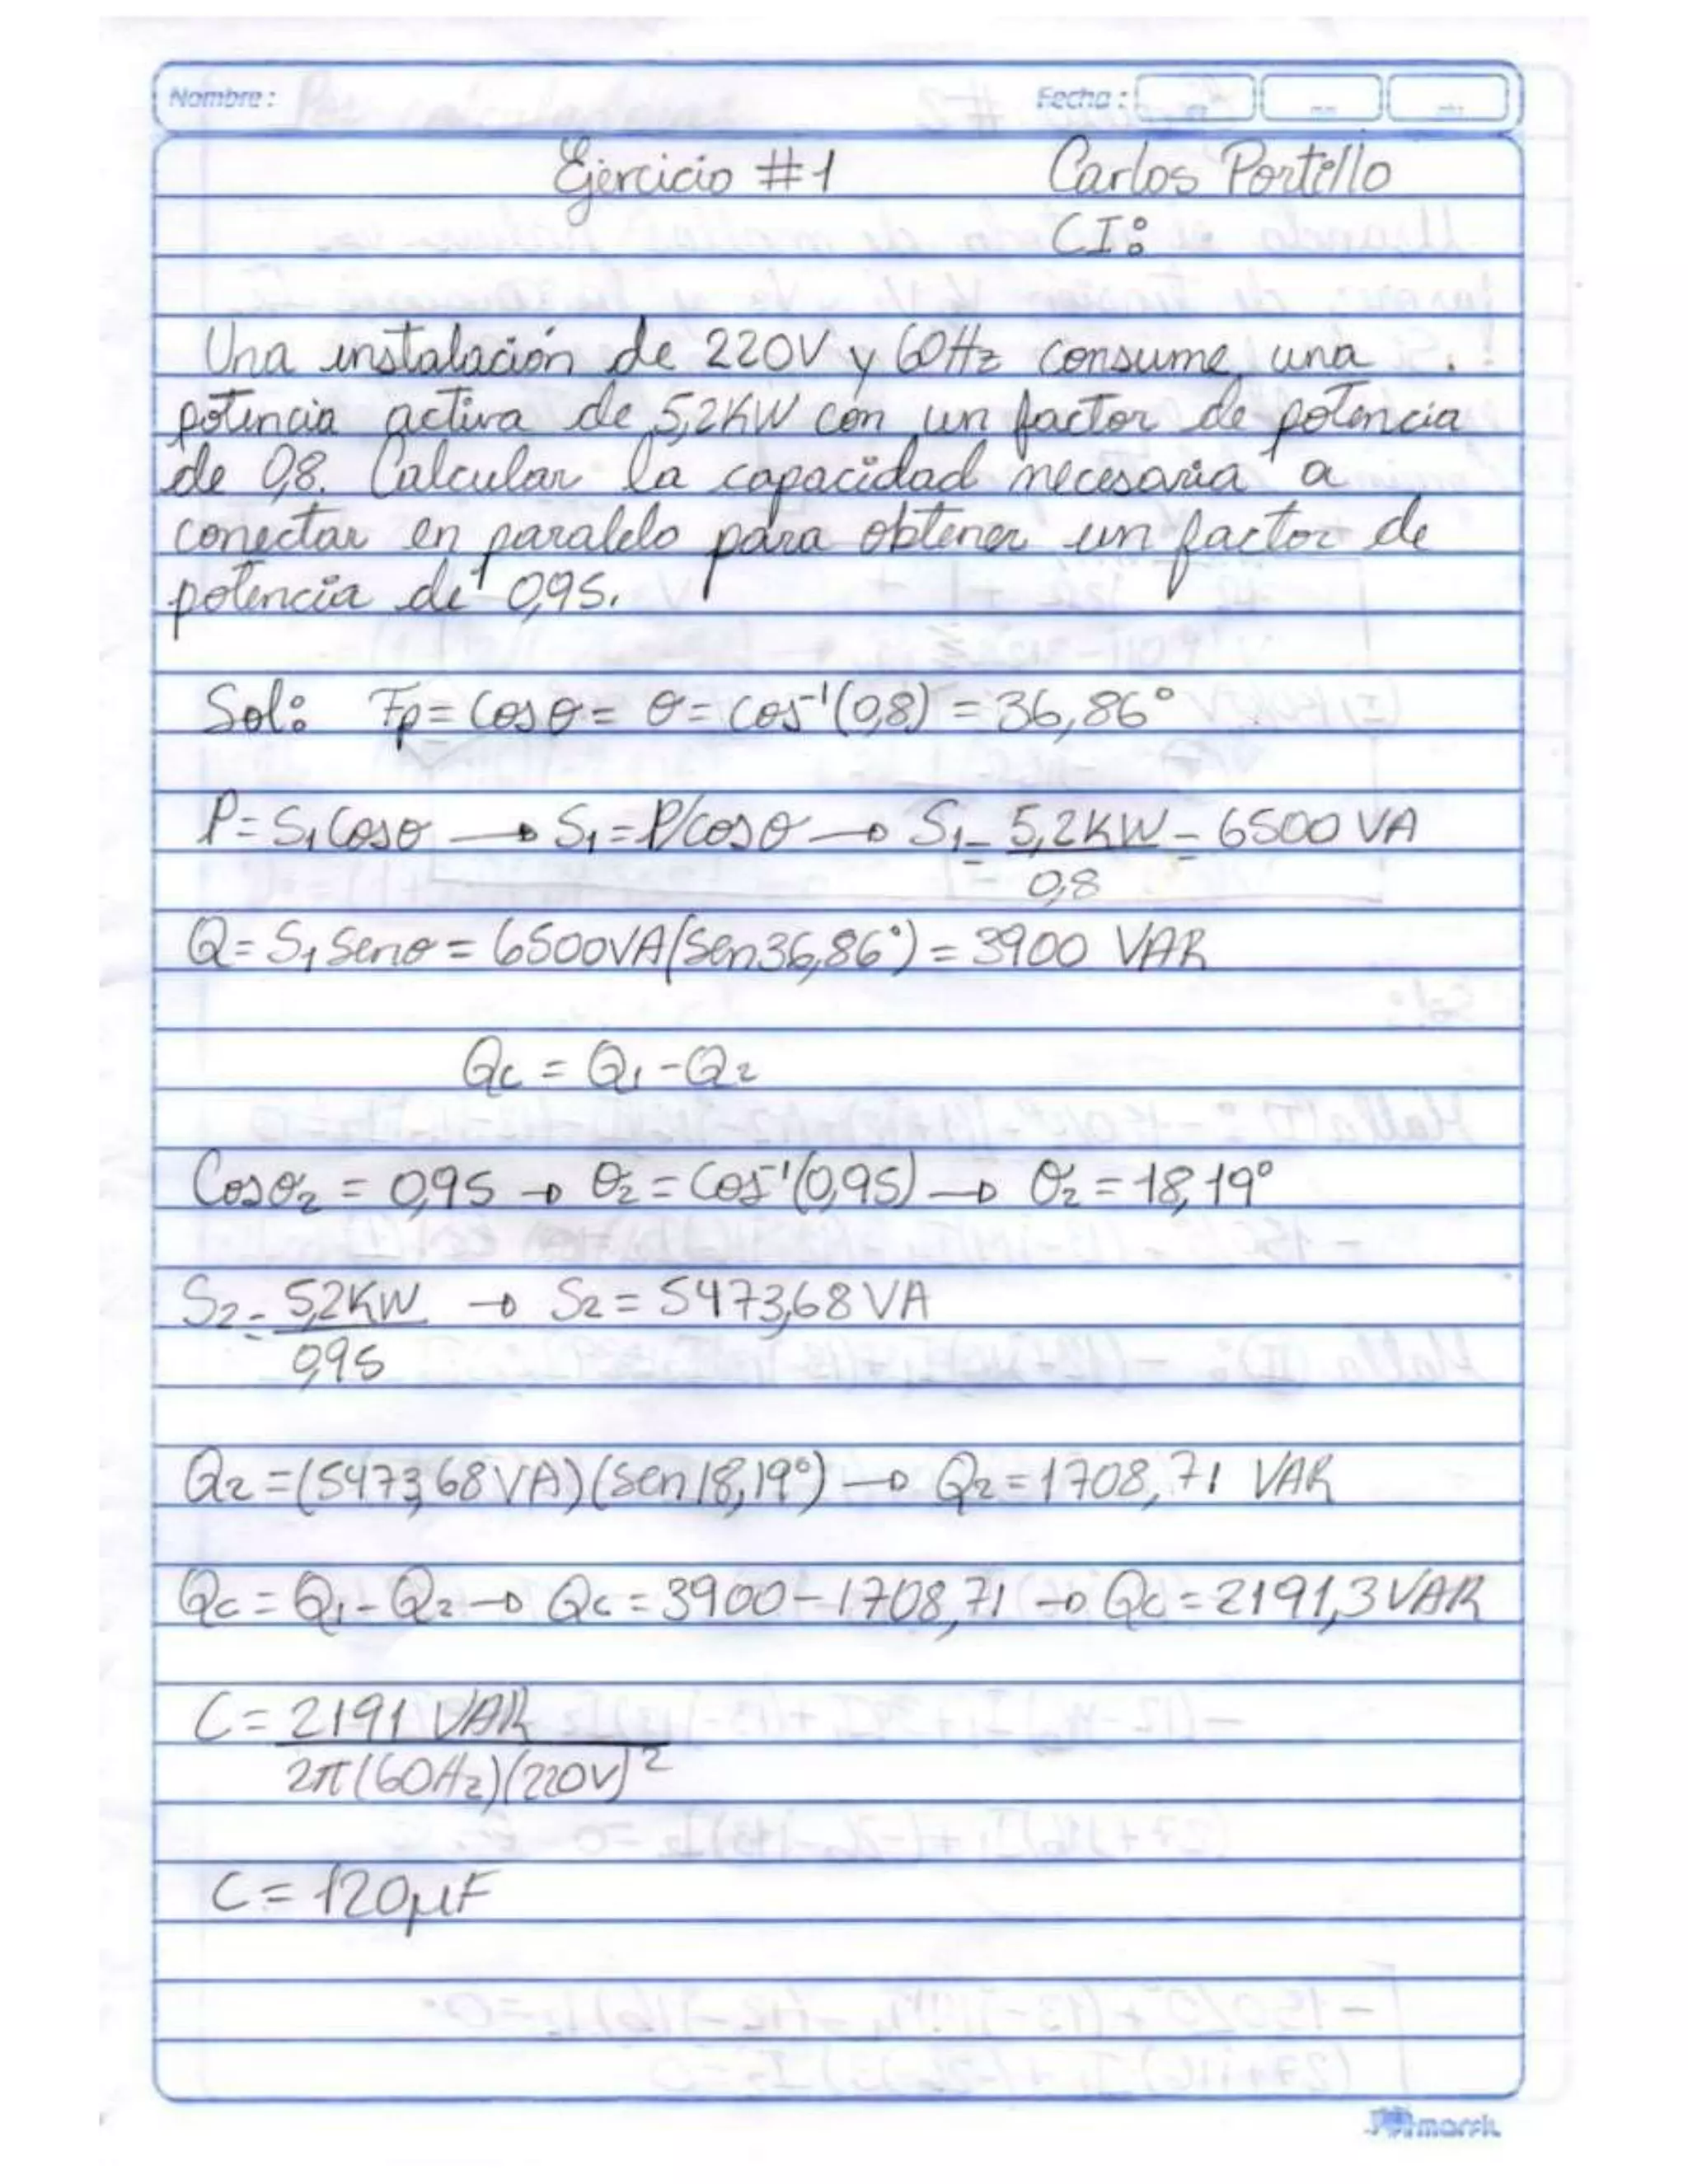 Nombre: Fecha:
Ejercicio #1 Carlos Portillo
CI:
Una instalación de 220V y 60Hz consume una
potencia activa de 5,2KW con un factor de potencia
de 0,8. Calcular la capacidad necesaria a
conectar en paralelo para obtener un factor de
potencia de 0,95.
Sol: Fp=Cosθ= θ=cos⁻¹(0,8)=36,86°
P=S₁Cosθ → S₁=P/cosθ → S₁=5,2KW/0,8=6500VA
Q=S₁Senθ=6500VA(Sen36,86°)=3900 VAR
Qc=Q₁-Q₂
Cosθ₂=0,95 → θ₂=Cos⁻¹(0,95) → θ₂=18,19°
S₂=5,2KW/0,95 → S₂=5473,68VA
Q₂=(5473,68VA)(Sen18,19°) → Q₂=1708,71 VAR
Qc=Q₁-Q₂ → Qc=3900-1708,71 → Qc=2191,3VAR
C=2191 VAR/2π(60Hz)(220V)²
C=120μF